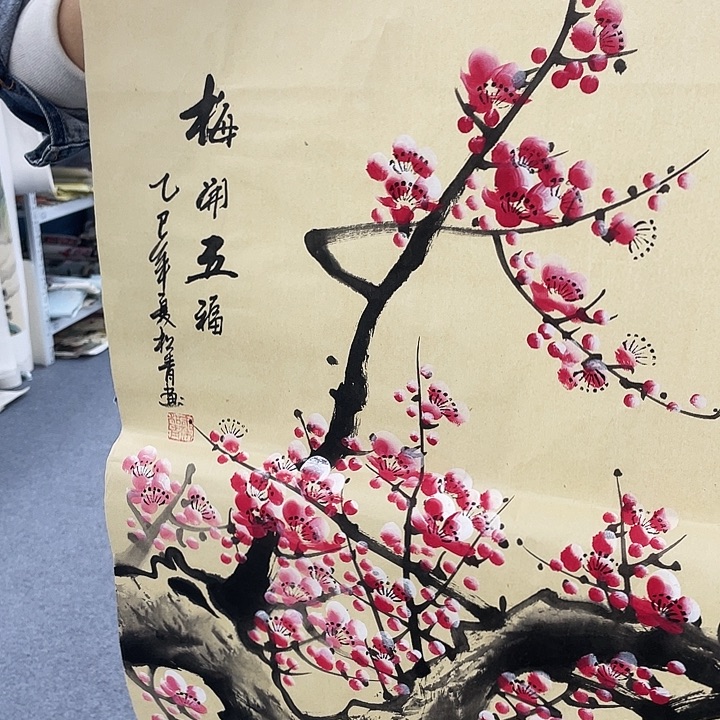 梅開五福
乙巳年夏松青畫